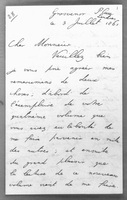 Grosvenor
le 3 Juillet 186
Cher Monsieur
Veuillez bien
je vous prie agréer mes
remerciments de deux
choses, d'abord de
l'exemplaire de votre
quatrième volume que
vous avez eu la bonté de
me faire parvenir au nom
des autres, et ensuite
du grand plaisir que
la lecture de ce nouveau
volume vient de me faire